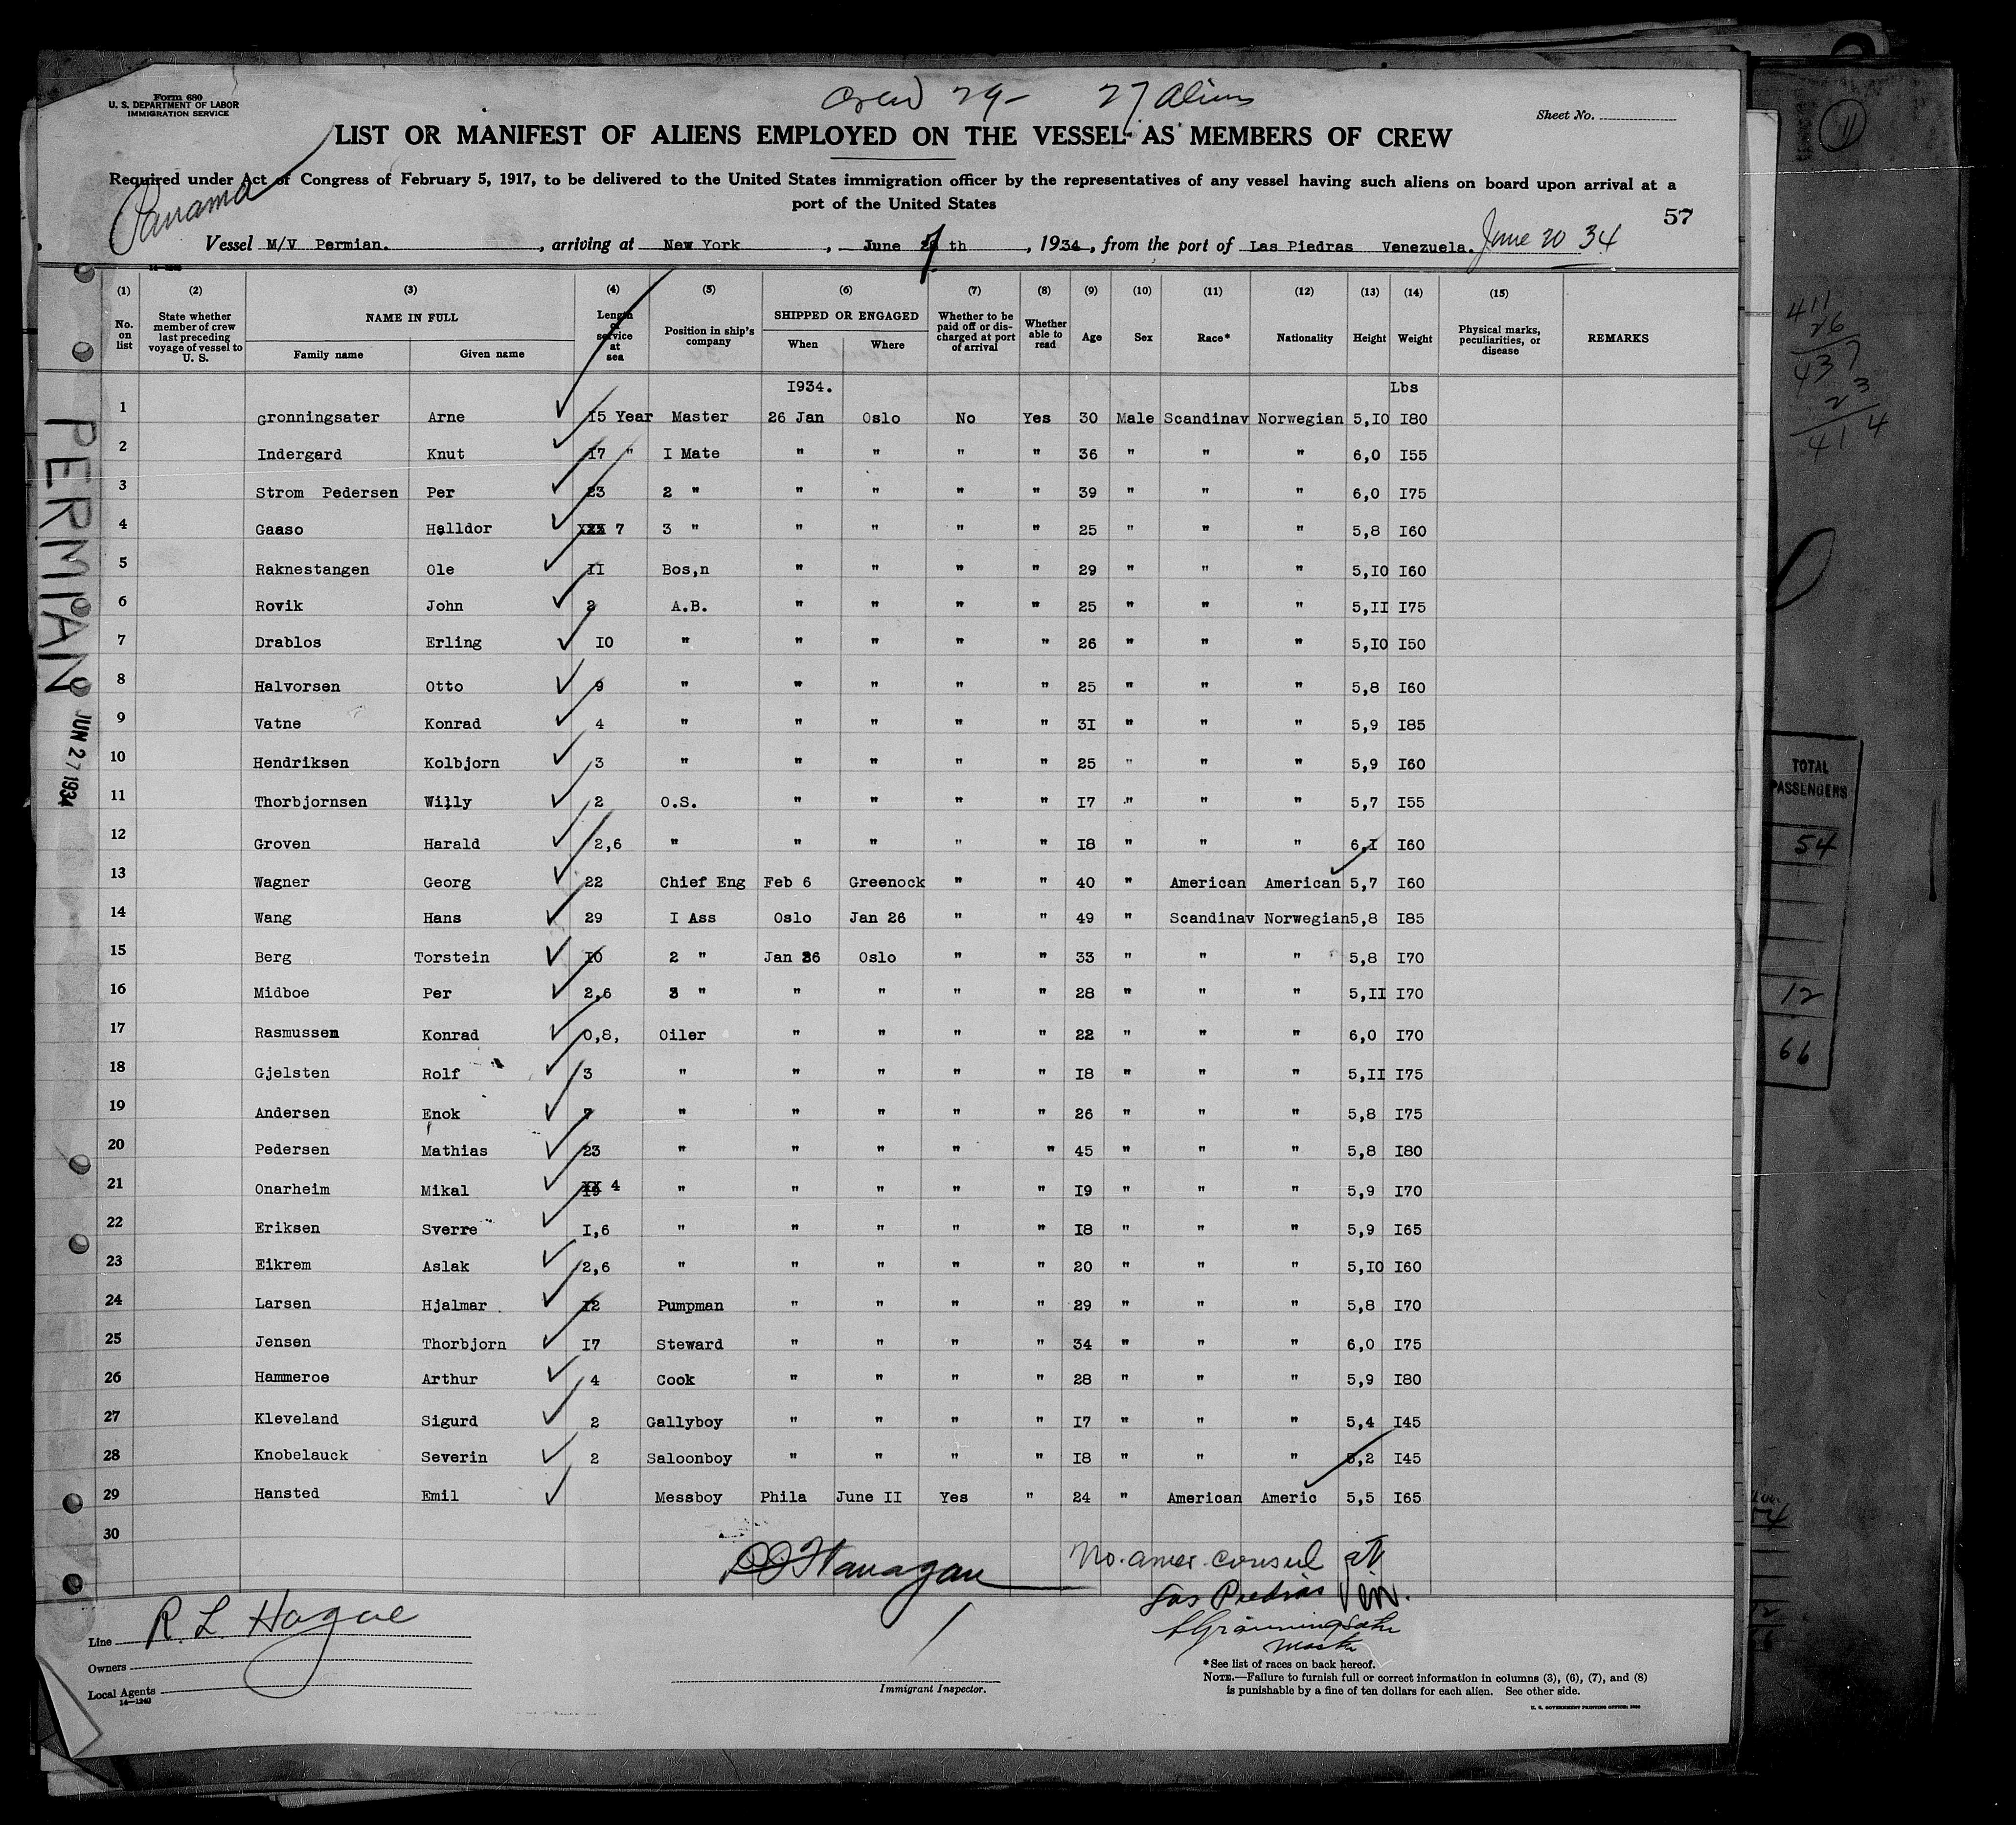 Crew 29- 27 Aliens
Form 680
U. S. DEPARTMENT OF LABOR
IMMIGRATION SERVICE
Sheet No.
LIST OR MANIFEST OF ALIENS EMPLOYED ON THE VESSEL AS MEMBERS OF CREW
Required under Act of Congress of February 5, 1917, to be delivered to the United States immigration officer by the representatives of any vessel having such aliens on board upon arrival at a
port of the United States
Panama
57
Vessel M/V Permian. , arriving at New York , June 27 th , 1934 , from the port of Las Piedras Venezuela. June 20 34
(1) (2) (3) (4) (5) (6) (7) (8) (9) (10) (11) (12) (13) (14) (15)
No. on list State whether member of crew last preceding voyage of vessel to U. S. NAME IN FULL Family name Given name Length of service at sea Position in ship's company SHIPPED OR ENGAGED When Where Whether to be paid off or discharged at port of arrival Whether able to read Age Sex Race* Nationality Height Weight Physical marks, peculiarities, or disease REMARKS
1934. Lbs
1 Gronningsater Arne I5 Year Master 26 Jan Oslo No Yes 30 Male Scandinav Norwegian 5,I0 I80
2 Indergard Knut I7 " I Mate " " " " 36 " " " 6,0 I55
3 Strom Pedersen Per 23 2 " " " " " 39 " " " 6,0 I75
4 Gaaso Halldor 7 3 " " " " " 25 " " " 5,8 I60
5 Raknestangen Ole II Bos,n " " " " 29 " " " 5,I0 I60
6 Rovik John 2 A.B. " " " " 25 " " " 5,II I75
7 Drablos Erling I0 " " " " " 26 " " " 5,I0 I50
8 Halvorsen Otto 9 " " " " " 25 " " " 5,8 I60
9 Vatne Konrad 4 " " " " " 3I " " " 5,9 I85
10 Hendriksen Kolbjorn 3 " " " " " 25 " " " 5,9 I60
11 Thorbjornsen Willy 2 O.S. " " " " I7 " " " 5,7 I55
12 Groven Harald 2,6 " " " " " I8 " " " 6,I I60
13 Wagner Georg 22 Chief Eng Feb 6 Greenock " " 40 " American American 5,7 I60
14 Wang Hans 29 I Ass Oslo Jan 26 " " 49 " Scandinav Norwegian 5,8 I85
15 Berg Torstein I0 2 " Jan 26 Oslo " " 33 " " " 5,8 I70
16 Midboe Per 2,6 3 " " " " " 28 " " " 5,II I70
17 Rasmussen Konrad 0,8, Oiler " " " " 22 " " " 6,0 I70
18 Gjelsten Rolf 3 " " " " " I8 " " " 5,II I75
19 Andersen Enok 7 " " " " " 26 " " " 5,8 I75
20 Pedersen Mathias 23 " " " " " 45 " " " 5,8 I80
21 Onarheim Mikal 4 " " " " " I9 " " " 5,9 I70
22 Eriksen Sverre I,6 " " " " " I8 " " " 5,9 I65
23 Eikrem Aslak 2,6 " " " " " 20 " " " 5,I0 I60
24 Larsen Hjalmar I2 Pumpman " " " " 29 " " " 5,8 I70
25 Jensen Thorbjorn I7 Steward " " " " 34 " " " 6,0 I75
26 Hammeroe Arthur 4 Cook " " " " 28 " " " 5,9 I80
27 Kleveland Sigurd 2 Gallyboy " " " " I7 " " " 5,4 I45
28 Knobelauck Severin 2 Saloonboy " " " " I8 " " " 5,2 I45
29 Hansted Emil Messboy Phila June II Yes " 24 " American Americ 5,5 I65
30
Flanagan
No. amer. consul at
Las Piedras Ven.
Gronningsater
Master
Line R. L Hague
Owners
Local Agents
14—1240
Immigrant Inspector.
*See list of races on back hereof.
NOTE.—Failure to furnish full or correct information in columns (3), (6), (7), and (8)
is punishable by a fine of ten dollars for each alien. See other side.
U. S. GOVERNMENT PRINTING OFFICE: 1930
PERMIAN
JUN 27 1934
11
411
26
437
23
414
TOTAL
PASSENGERS
54
12
66